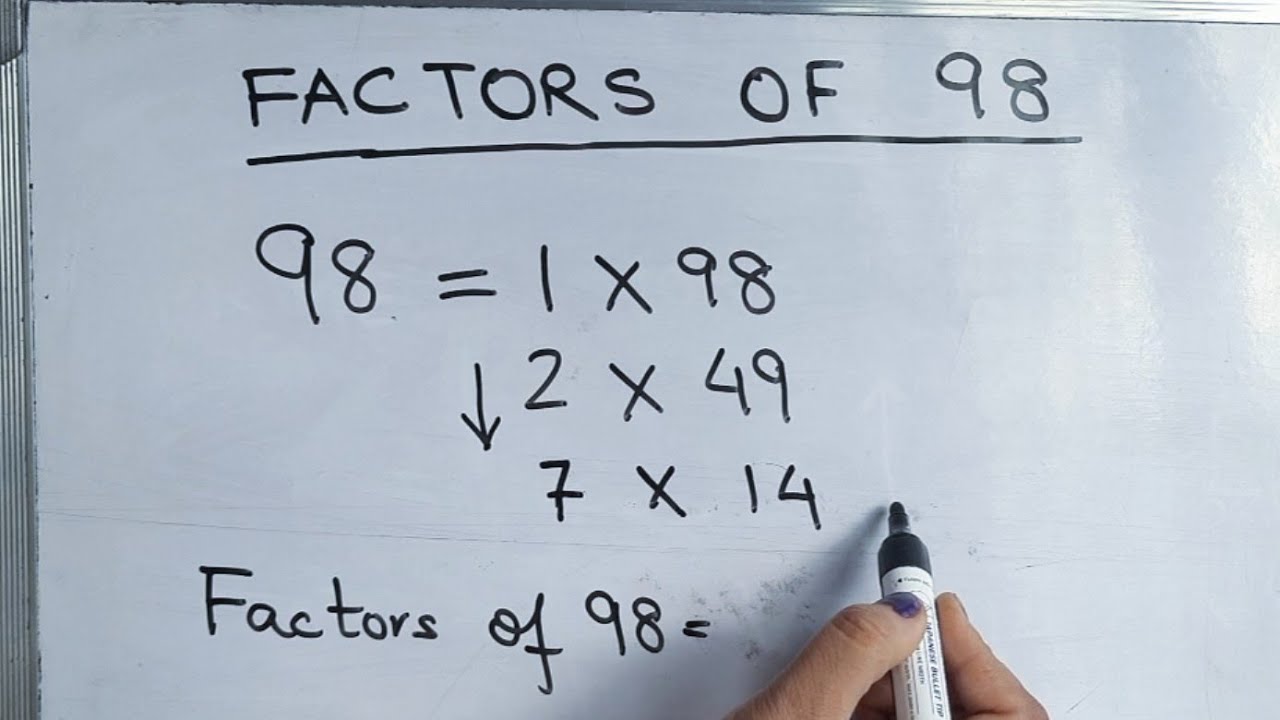 FACTORS OF 98
98 = 1 X 98
↓ 2 X 49
7 X 14
Factors of 98 =
JAPANESE BULLET TIP